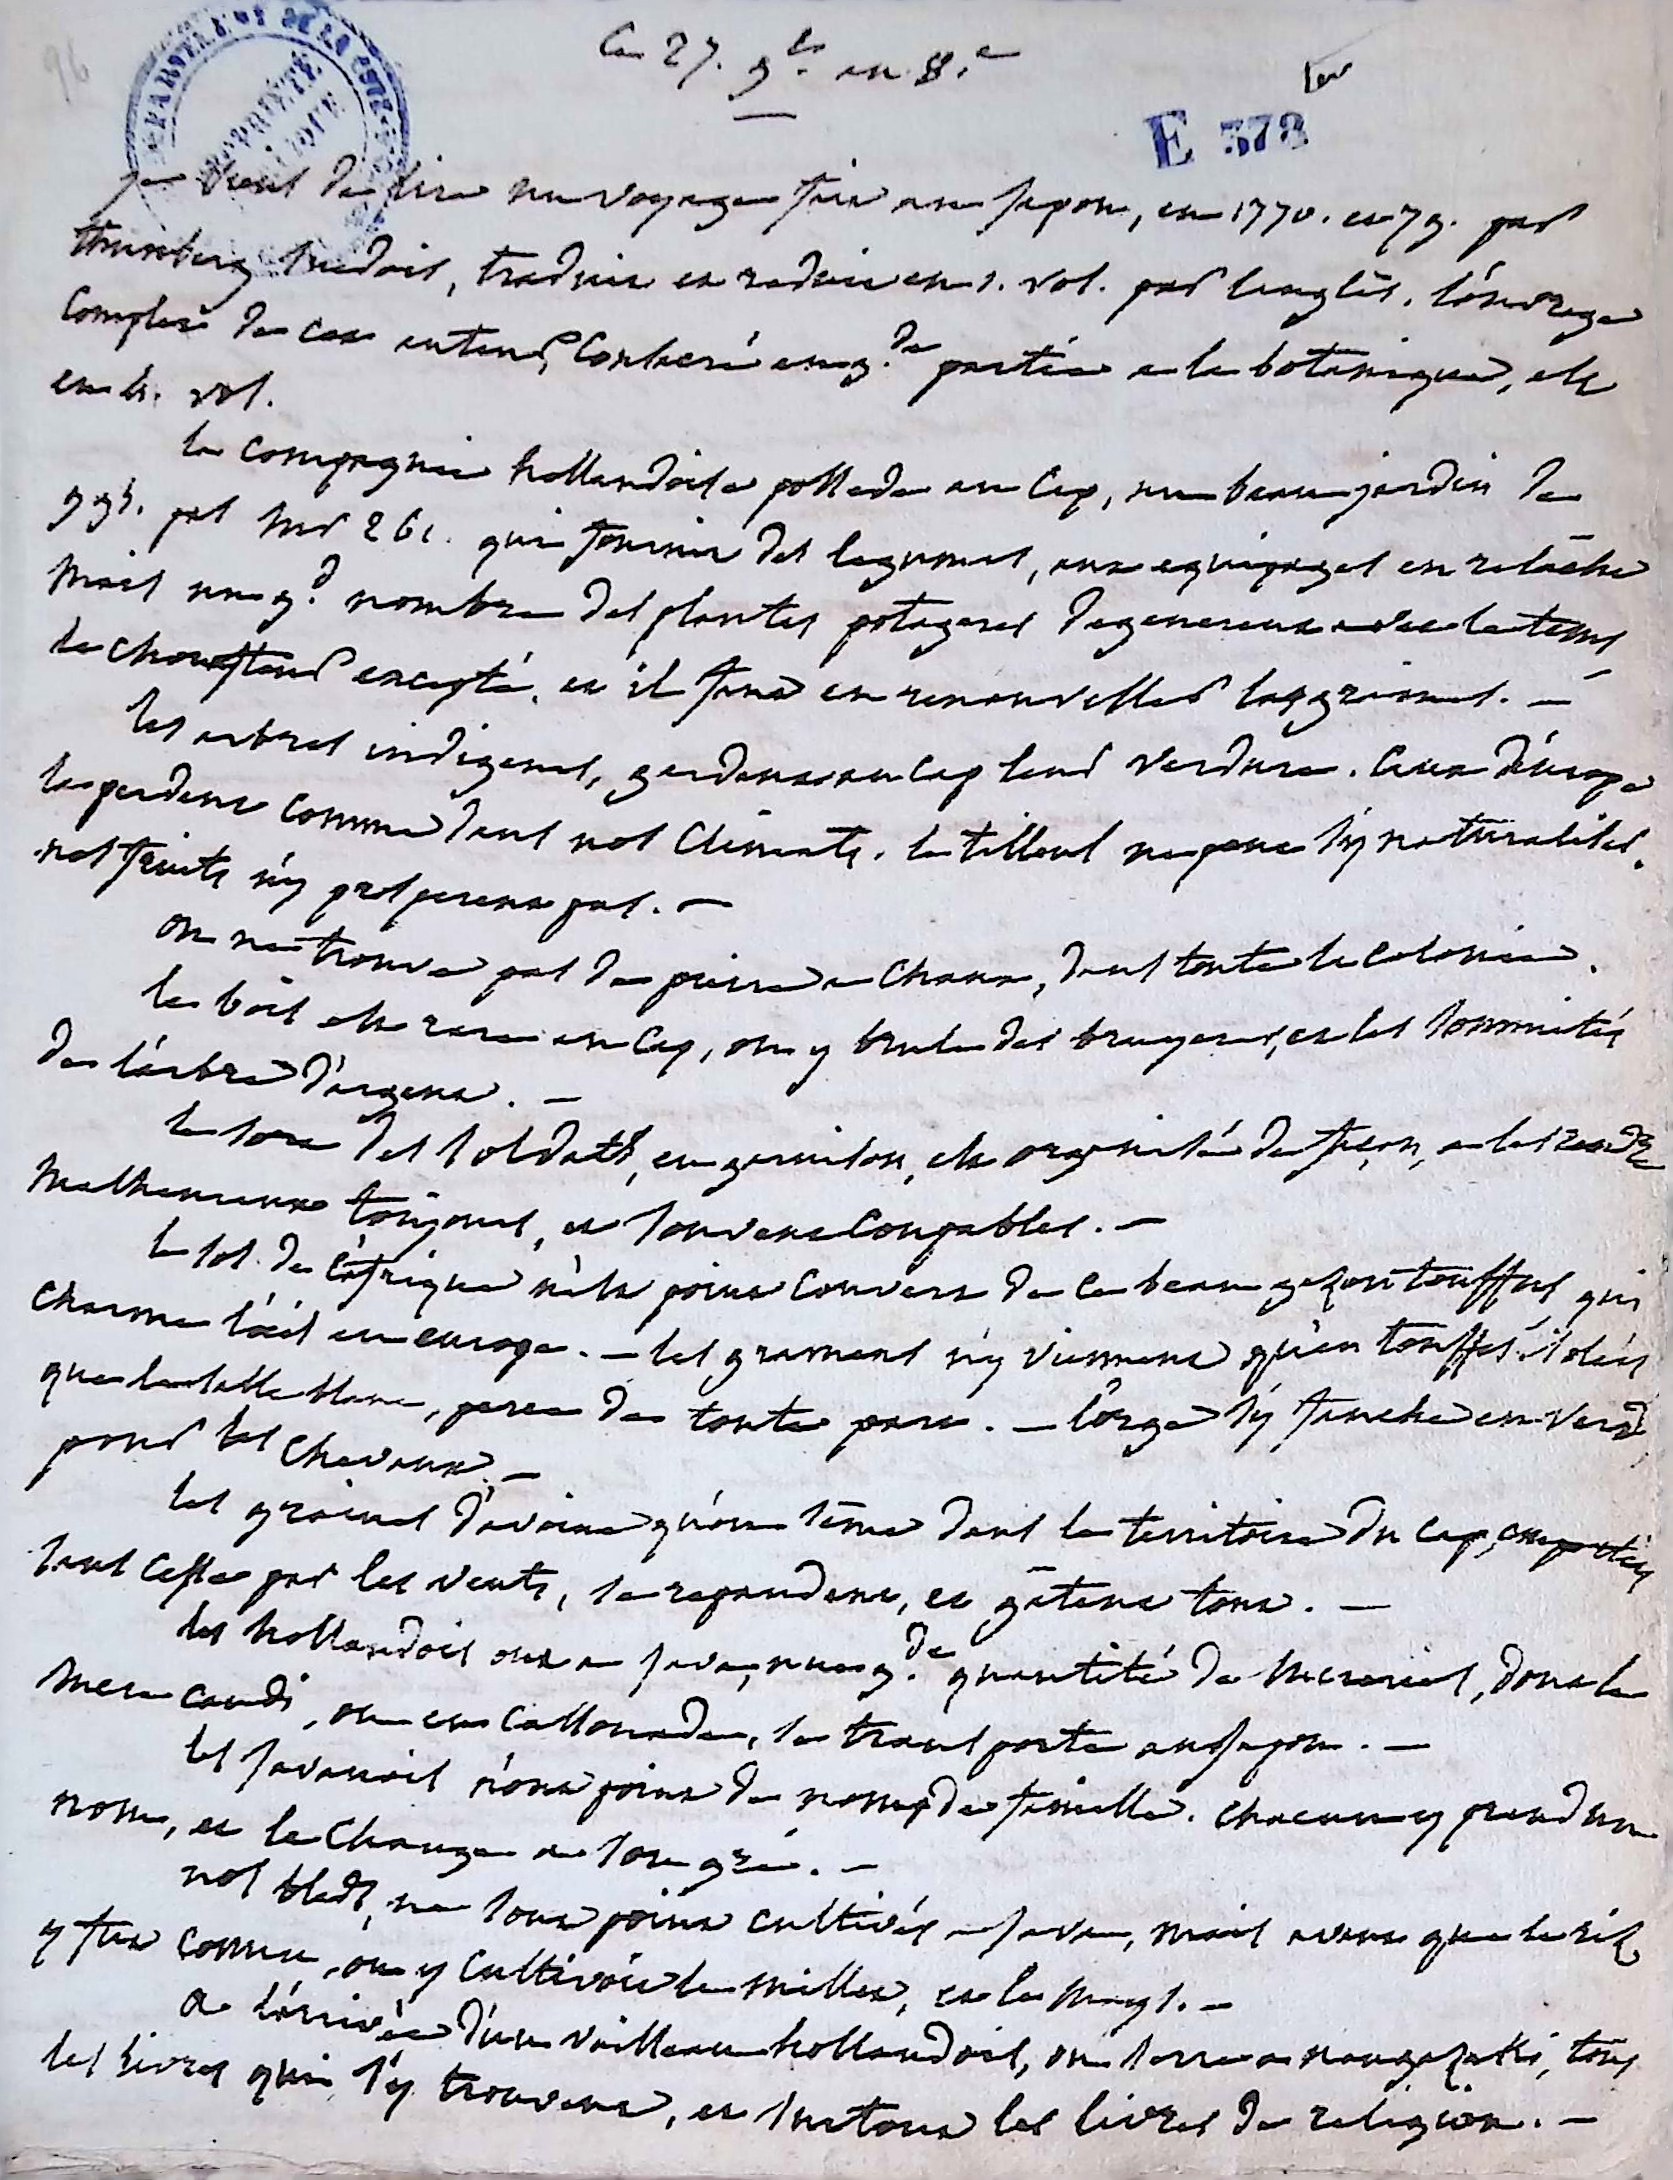 96
Ce 27. 9.bre an 8.e
E 378
DEPARTEMENT DE LA COTE
PROPRIÉTÉ PUBLIQUE
je viens de lire un voyage fait au Japon, en 1770. et 79. par
thunberg suedois, traduit et reduit en 1. vol. par langlès. l'ouvrage
complet de cet auteur, consacré en g.de partie a la botanique, est
en 4. vol.
la compagnie hollandoise possede au Cap, un beau jardin de
991. pas sur 261. qui fournit des legumes, aux equipages en relâche
mais un g.d nombre des plantes potageres degenerent avec le tems,
le choufleur excepté, et il faut en renouveller les graines. —
les arbres indigenes, gardent au cap leur verdure. Ceux d'europe
la perdent comme dans nos climats. le tilleul ne peut s'y naturaliser.
nos fruits n'y prosperent pas. —
on ne trouve pas de pierre a chaux, dans toute la colonie.
le bois est rare au Cap, on y brule des bruyeres, et les sommités
de l'arbre d'argent. —
le sort des soldats, en garnison, est organisé de façon, a les rendre
malheureux toujours, et souvent coupables. —
le sol de l'afrique n'est point couvert de ce beau gazon touffus, qui
charme l'œil en europe. — les gramens n'y viennent qu'en touffes isolées
que le sable blanc, perce de toute part. — l'orge s'y fauche en verd,
pour les chevaux. —
les graines d'avoine qu'on sème dans le territoire du cap, emportées
sans cesse par les vents, se repandent, et gâtent tout. —
les hollandois ont a java, une g.de quantité de sucreries, dont le
sucre candi, ou en cassonade, se transporte au Japon. —
les javanois n'ont point de noms de famille. chacun y prend un
nom, et le change a son gré. —
nos bleds, ne sont point cultivés a java, mais avant que le riz
y fut connu, on y cultivoit le millet, et le mays. —
a l'arrivée d'un vaisseau hollandois, on serre a nangazaki, tous
les livres qui s'y trouvent, et surtout les livres de religion. —